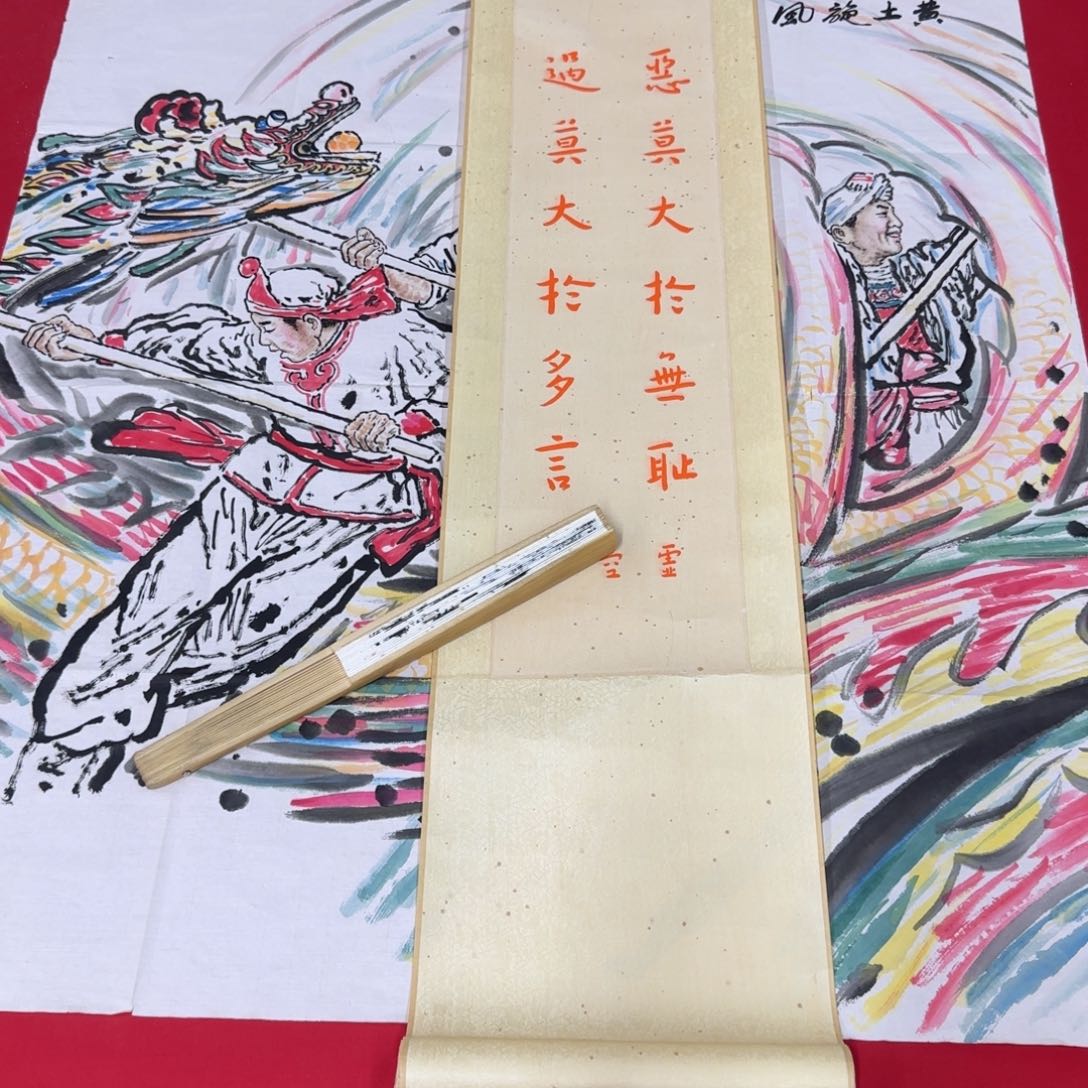 黄土旋風
惡莫大於無恥
過莫大於多言
靈空